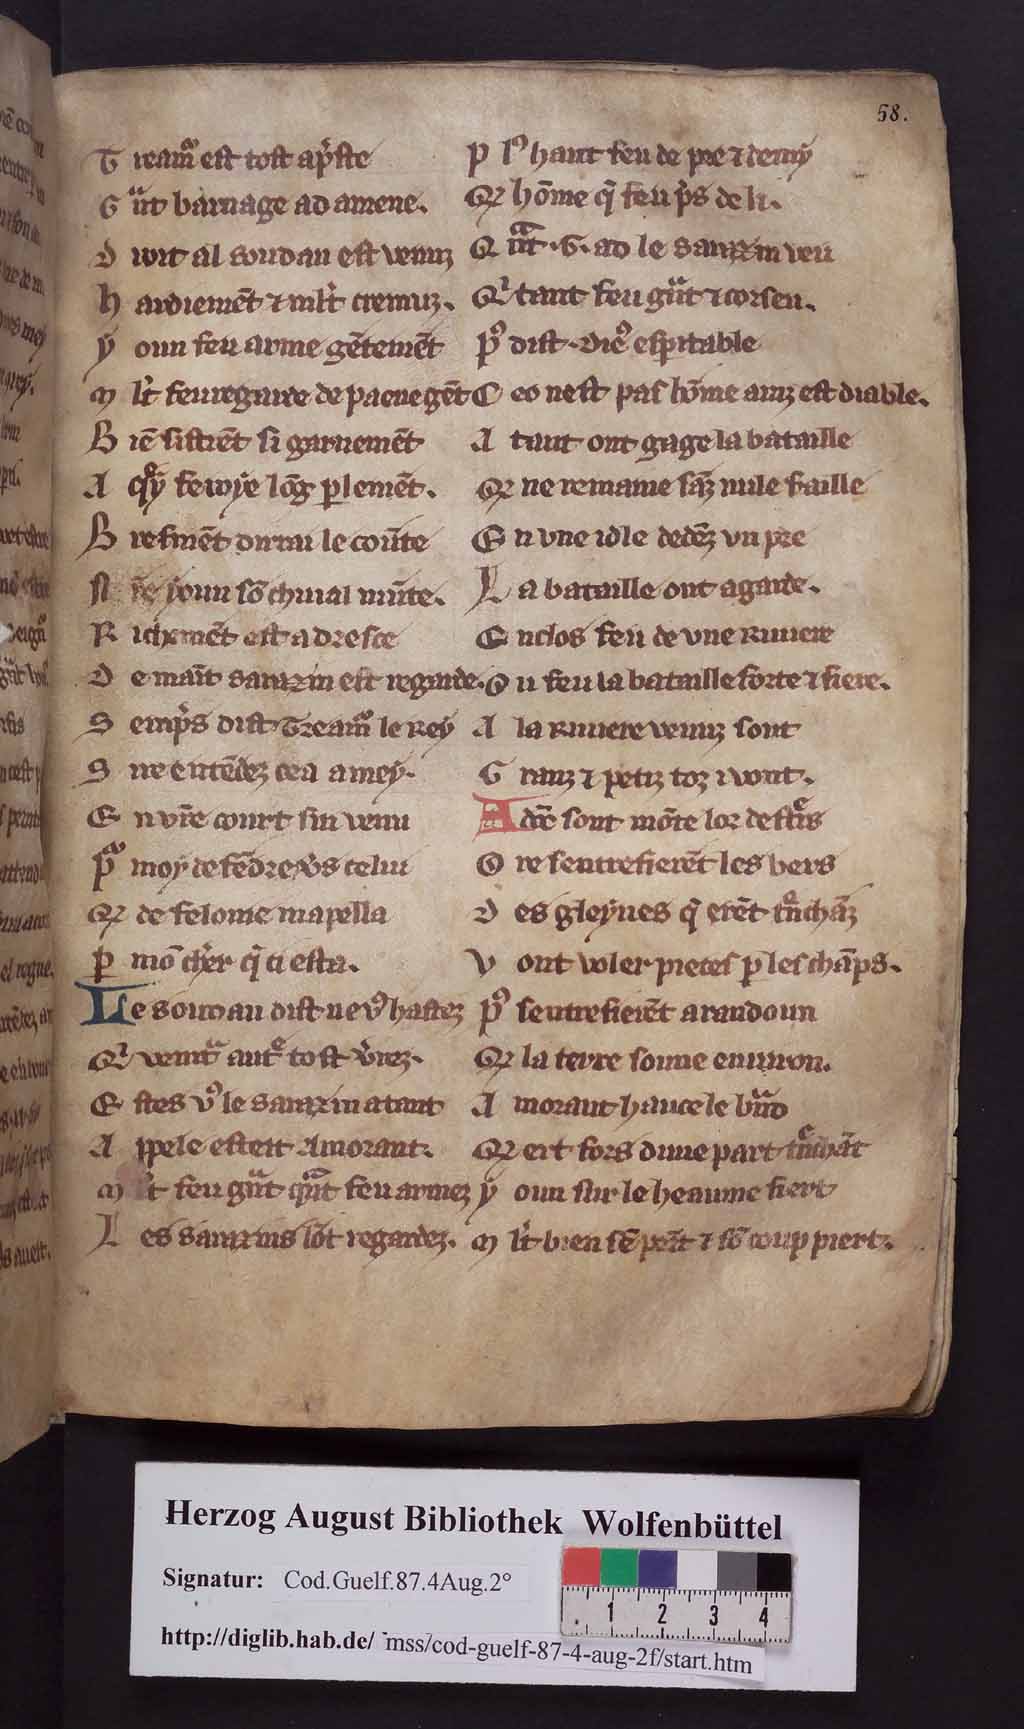 58.
T reamᵒ est tost ap̃ste
G ᵃut barnage ad amene.
D roit al soudan est venuz
h ardiemēt ⁊ mlt̃ cremuz.
ẏ oun feu arme gētemēt
M lt̃ feu regarde de paene gēt
B iē sistrēt si garnemēt
A qͦy feroẏe lōg ꝑlemēt.
B refmēt dirrai le coūte
ẏoun sō chiual mūte.
R ichemēt est adresce
D e maīt sarazin est regarde.
S emp̃s dist Treamᵒ le Reẏ
S ire entēdez cea a meẏ.
E n vr̄e court sui venu
Pᵒ moy defēdre v̓s celui
Qꝫ de felonie mapella
ꝑ mō ch̓er q̄ ci esta.
Le soudan dist ne vͦ hastez
Qͥ ventᵃ autᵉ tost v̓rez.
E stes vͦ le sarazin atant
A ppele esteit Amorant.
M lt̃ feu gᵃut qᵃnt feu armez
L es sarazins lōt regardez.
P lᵒ haut feu de pie ⁊ demẏ
Qꝫ hōme q̄ feu p̓s de li.
Q ᵃnt .G. ad le sarazin veu
Qͥ tant feu gᵃut ⁊ corseu.
Pᵒ dist dieͧ espitable
C eo nest pas hōme anz est diable.
A tant ont gage la bataille
Qꝫ ne remaine sāz nule faille
E n vne idle dedēz vn pre
L a bataille ont agarde.
E nclos feu de vne Riuiere
O u feu la bataille forte ⁊ fiere.
A la Riuiere venuz sont
G ranz ⁊ petiz toz i vont.
Adōc sont mōte lor destᵉs
O re sentrefierēt les vers
D es gleẏues q̄ erēt tᵃnchāz
V ont voler pieces ꝑ les chāps.
Pᵒ sentrefierēt a randoun
Qꝫ la terre sonne enuiron.
A morant hauce le bᵃnd
Qꝫ ert fors dune part tᵉnchāt
ẏ oun sur le heaume fiert
M lt̃ bien sē pēt ⁊ sō coup piert.
Herzog August Bibliothek Wolfenbüttel
Signatur: Cod.Guelf.87.4Aug.2°
1 2 3 4
http://diglib.hab.de/ mss/cod-guelf-87-4-aug-2f/start.htm